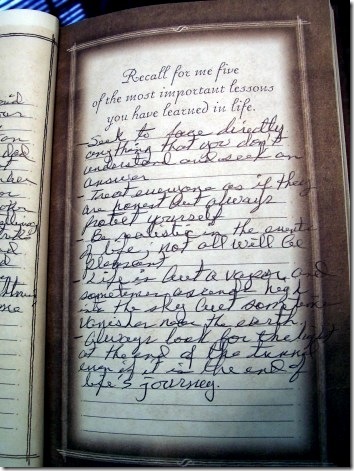 Recall for me five
of the most important lessons
you have learned in life.
- Seek to face directly
anything that you don't
understand and seek an
answer
- Treat everyone as if they
are honest but always
protect yourself
- Be realistic in the events
of life, not all will be
pleasant
- Life is but a vapor and
sometimes ascends high
into the sky but sometime
vanishes near the earth
- Always look for the light
at the end of the tunnel
even if it is the end of
life's journey.